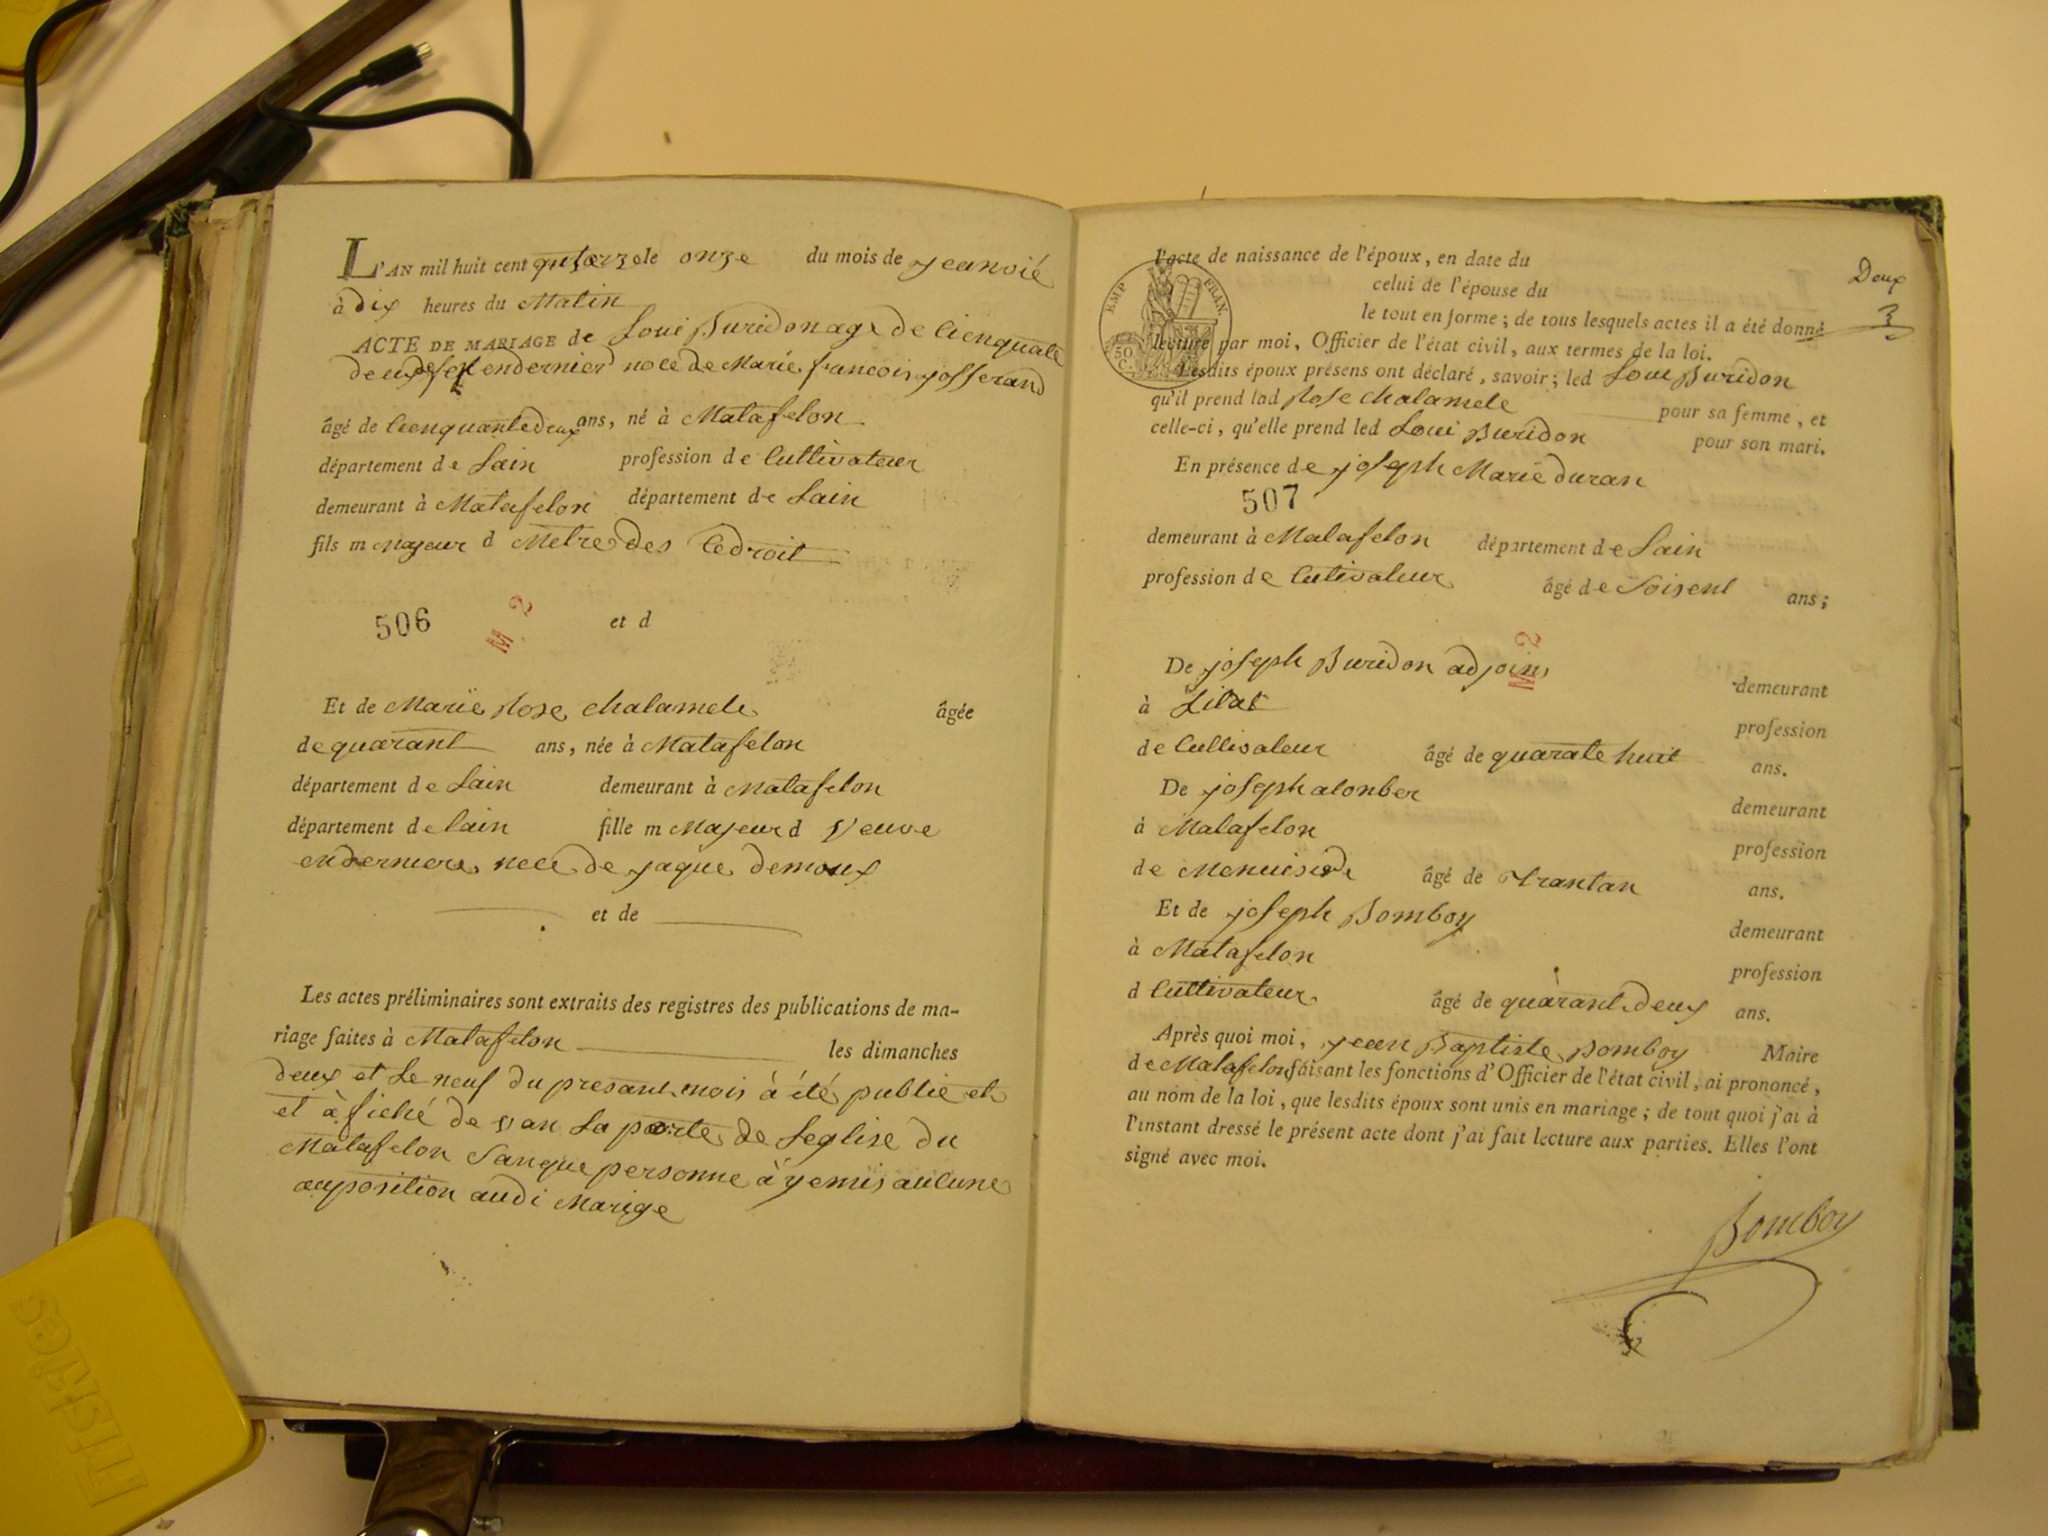 L'AN mil huit cent quatorze le onze du mois de jeanvié
à dix heures du Matin
ACTE DE MARIAGE de Loui Buridon age de cienquate
deux en dernier noce de Marie francois josserand
âgé de cienquante deux ans, né à Matafelon
département de Lain profession de Cultivateur
demeurant à Matafelon département de Lain
fils m Majeur d Metre des Cedroit
506 M 2 et d
Et de Marie Rose chalamele âgée
de quarant ans, née à Matafelon
département de Lain demeurant à Matafelon
département de lain fille m Majeur d veuve
en derniere nece de jaque demoux
et de
Les actes préliminaires sont extraits des registres des publications de ma-
riage faites à Matafelon les dimanches
deux et Le neuf du presant mois à été publié et
et àfiché de van La porte de Leglise du
Matafelon Sanque personne à y emis aucune
oupposition audi Marige
Deux
3
l'acte de naissance de l'époux, en date du
celui de l'épouse du
le tout en forme; de tous lesquels actes il a été donné
lecture par moi, Officier de l'état civil, aux termes de la loi.
EMP FRAN.
50 C.
Lesdits époux présens ont déclaré, savoir; led Loui Buridon
qu'il prend lad Rose chalamele pour sa femme, et
celle-ci, qu'elle prend led Loui Buridon pour son mari.
En présence de joseph Marie duran
507
demeurant à Matafelon département de Lain
profession de Cutivateur âgé de Soisent ans;
De joseph Buridon adjoin demeurant
M 2
à Lilat profession
de Cultivateur âgé de quarate huit ans.
De joseph alonber demeurant
à Matafelon profession
de Menuisier âgé de trantan ans.
Et de joseph Bomboy demeurant
à Matafelon profession
d Cultivateur âgé de quarant deux ans.
Après quoi moi, jean Baptiste Bomboy Maire
de Matafelon faisant les fonctions d'Officier de l'état civil, ai prononcé,
au nom de la loi, que lesdits époux sont unis en mariage; de tout quoi j'ai à
l'instant dressé le présent acte dont j'ai fait lecture aux parties. Elles l'ont
signé avec moi.
Bomboy